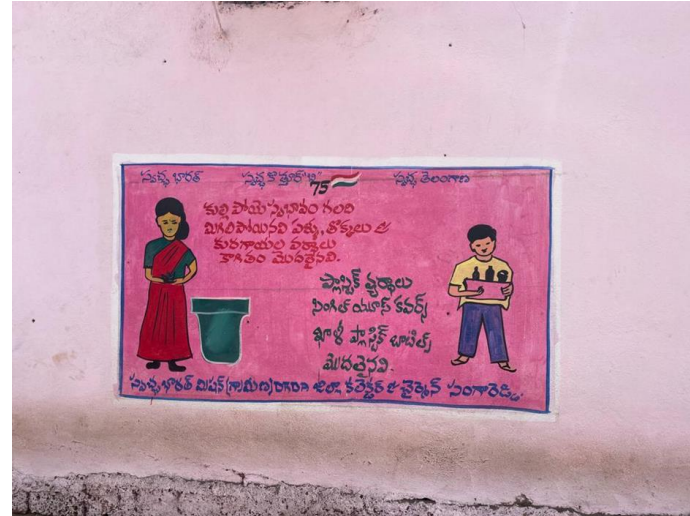 స్వచ్ఛ భారత్ స్వచ్ఛ కొత్తూర్ స్వచ్ఛ తెలంగాణ
75
కుల్లి పోయె స్వభావం గలది
మిగిలిపోయినవి పళ్ళు, తొక్కలు &
కురగాయల వ్యర్థాలు
కాగితం మొదలైనవి.
ప్లాస్టిక్ వ్యర్థాలు
సింగిల్ యూస్ కవర్స్
ఖాళీ ప్లాస్టిక్ బాటిల్స్
మొదలైనవి.
స్వచ్ఛ భారత్ మిషన్ (గ్రామీణ) జిల్లా కలెక్టర్ & చైర్మెన్ సంగారెడ్డి.